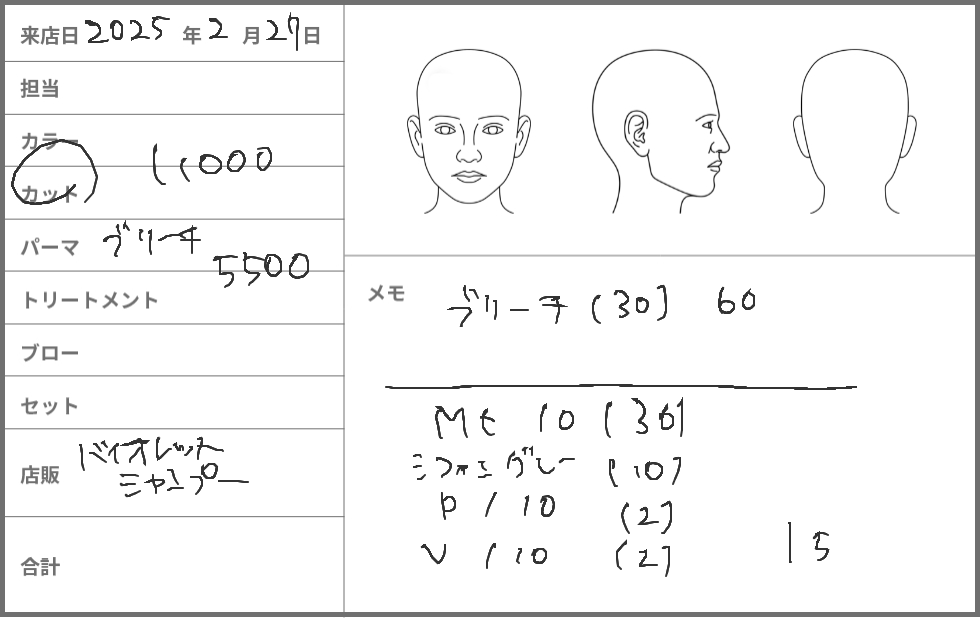 来店日 2025 年 2 月 27 日
担当
カラー
11000
カット
パーマ ブリーチ
5500
トリートメント
ブロー
セット
店販 バイオレット
シャンプー
合計
メモ ブリーチ (30) 60
Mt 10 (30)
シフォングレー (10)
p / 10 (2)
V / 10 (2) 15